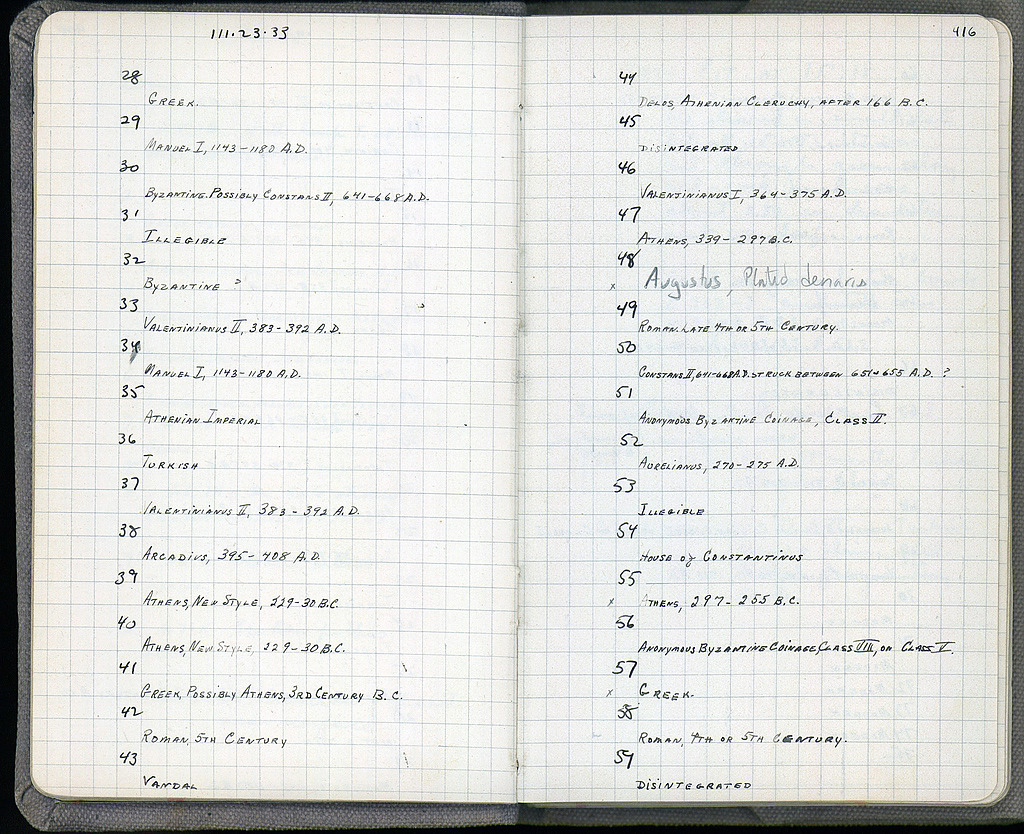 111·23·33
28
GREEK.
29
MANUEL I, 1143-1180 A.D.
30
BYZANTINE. POSSIBLY CONSTANS II, 641-668 A.D.
31
ILLEGIBLE
32
BYZANTINE ?
33
VALENTINIANUS II, 383-392 A.D.
34
MANUEL I, 1143-1180 A.D.
35
ATHENIAN IMPERIAL
36
TURKISH
37
VALENTINIANUS II, 383-392 A.D.
38
ARCADIUS, 395-408 A.D.
39
ATHENS, NEW STYLE, 229-30 B.C.
40
ATHENS, NEW STYLE, 229-30 B.C.
41
GREEK, POSSIBLY ATHENS, 3RD CENTURY B.C.
42
ROMAN, 5TH CENTURY
43
VANDAL
416
44
DELOS, ATHENIAN CLERUCHY, AFTER 166 B.C.
45
DISINTEGRATED
46
VALENTINIANUS I, 364-375 A.D.
47
ATHENS, 339-297 B.C.
48
x Augustus, Plated denaris
49
ROMAN. LATE 4TH OR 5TH CENTURY.
50
CONSTANS II, 641-668 A.D. STRUCK BETWEEN 651-655 A.D. ?
51
ANONYMOUS BYZANTINE COINAGE, CLASS II.
52
AURELIANUS, 270-275 A.D.
53
ILLEGIBLE
54
HOUSE OF CONSTANTINUS
55
x ATHENS, 297-255 B.C.
56
ANONYMOUS BYZANTINE COINAGE, CLASS VIII, OR CLASS V.
57
x GREEK.
58
ROMAN, 4TH OR 5TH CENTURY.
59
DISINTEGRATED